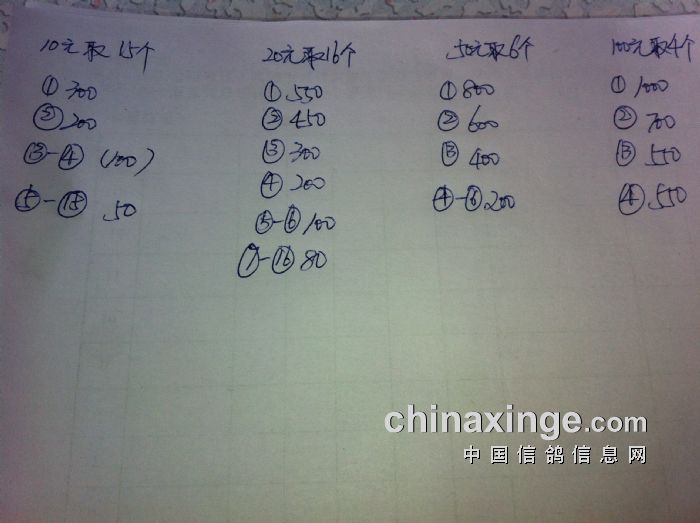 10元取15个
① 300
② 200
③-④ (100)
⑤-⑮ 50
20元取16个
① 550
② 450
③ 300
④ 200
⑤-⑥ 100
⑦-⑯ 80
50元取6个
① 800
② 600
③ 400
④-⑥ 200
100元取4个
① 1000
② 700
③ 550
④ 550
chinaxinge.com
中国信鸽信息网